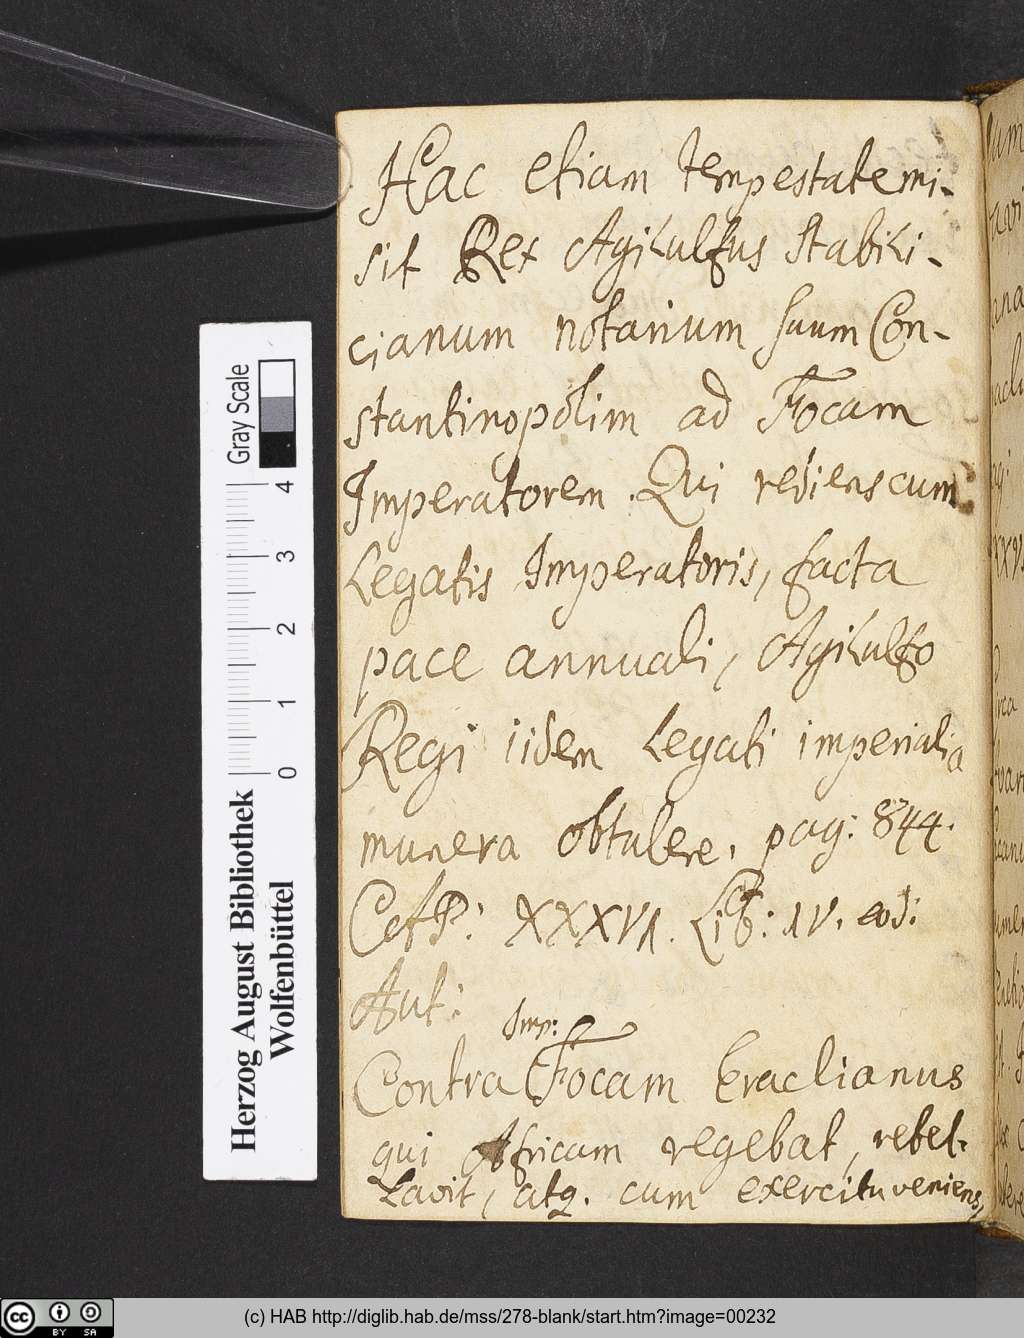 Hac etiam tempestate mi-
sit Rex Agilulfus Stabili-
cianum notarium suum Con-
stantinopolim ad Focam
Imperatorem. Qui rediens cum
Legatis Imperatoris, facta
pace annuali, Agilulfo
Regi iidem Legati imperialia
munera obtulere. pag: 844.
XXXVI. Lib: IV. eod:
Aut:
Imp:
Contra Focam Eraclianus
qui Africam regebat, rebel-
lavit, atq. cum exercitu veniens,
Gray Scale
4
3
2
1
0
Herzog August Bibliothek
Wolfenbüttel
cc BY SA
(c) HAB http://diglib.hab.de/mss/278-blank/start.htm?image=00232